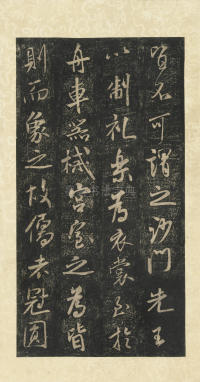 皆不可謂之沙門先王
以制礼樂為衣裳至於
舟車器械宮室之為皆
則而象之故儒者冠圓